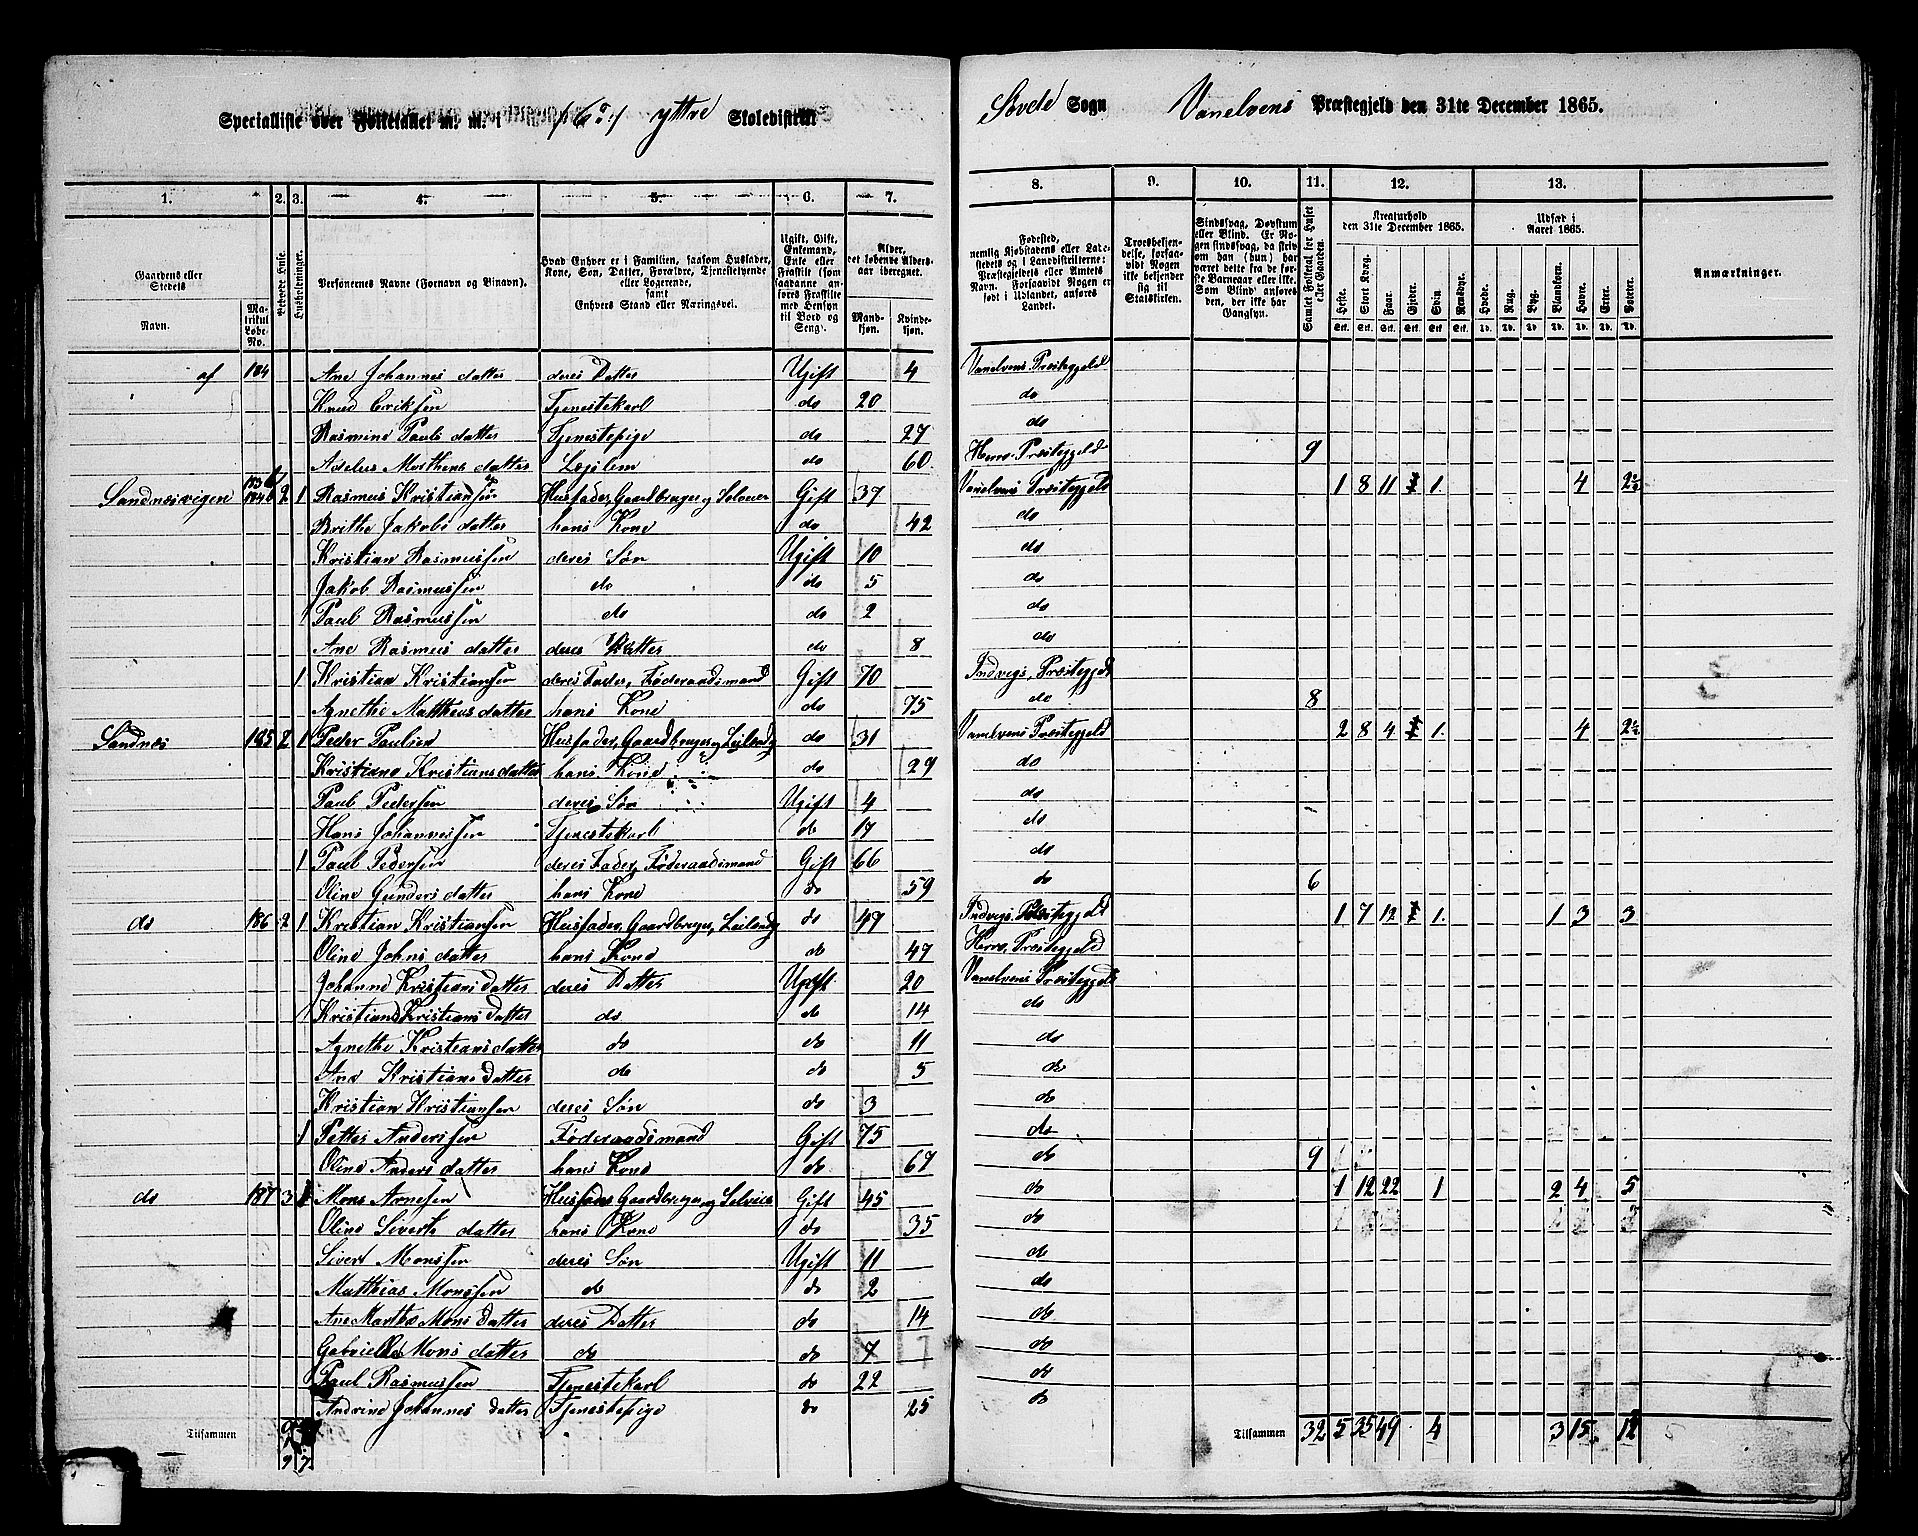 Specialliste over Folketallet m. m. i yttre Skoledistrikt
Sogn Vanelvens Præstegjeld den 31te December 1865.
1. 2. 3. 4. 5. 6. 7. 8. 9. 10. 11. 12. 13.
Gaardens eller Stedets
Navn.
Matrikul Løbe-No.
Beboede Huse.
Husholdninger.
Personernes Navne (Fornavn og Binavn).
Hvad Enhver er i Familien, saasom Husfader, Kone, Søn, Datter, Forældre, Tjenestetyende eller Logerende, samt Enhvers Stand eller Næringsvei.
Ugift, Gift, Enkemand, Enke eller Fraskilt (som saadanne anføres Fraskilte med Hensyn til Bord og Seng).
Alder, det løbende Alders-aar iberegnet.
Mandkjøn.
Kvindekjøn.
Fødested, nemlig Kjøbstadens eller Ladestedets og i Landdistrikterne: Præstegjeldets eller Amtets Navn. Forsaavidt Nogen er født i Udlandet, anføres Landet.
Troesbekjendelse, forsaavidt Nogen ikke bekjender sig til Statskirken.
Sindssvag, Døvstum eller Blind. Er Nogen sindssvag, da skriv om han (hun) har været dette fra de første Barneaar eller ikke. Som Blind anføres den, der ikke har Gangsyn.
Samlet Folketal for Huset eller Gaarden.
Kreaturhold den 31te December 1865.
Heste. Stort Kvæg. Faar. Gjeder. Svin. Rensdyr.
Udsæd i Aaret 1865.
Hvede. Rug. Byg. Blandkorn. Havre. Erter. Poteter.
Anmærkninger.
af 184 Ane Johannes datter deres Datter Ugift 4 Vanelvens Præstegjeld
Knud Eriksen Tjenestekarl do 20 do
Rasmine Pauls datter Tjenestepige do 27 do
Morthens datter Lægslem do 60 Herrø Præstegjeld 9
Sandnæsvigen 2 1 Rasmus Kristiansen Husfader, Gaardbruger og Selveier Gift 37 Vanelvens Præstegjeld 1 8 11 1 4 2½
Brithe Jakobs datter hans Kone do 42 do
Kristian Rasmussen deres Søn Ugift 10 do
Jakob Rasmussen do do 5 do
Paul Rasmussen do do 2 do
Ane Rasmus datter deres Datter do 8 do
1 Kristian Kristiansen deres Fader, Føderaadsmand Gift 70 Indvigs Præstegjeld
Agnethe Matthiasdatter hans Kone do 75 do 8
Sandnæs 185 2 1 Peder Paulsen Husfader, Gaardbruger og Leilændg do 31 Vanelvens Præstegjeld 2 8 4 1 4 2½
Kristiane Kristiansdatter hans Kone do 29 do
Paul Pedersen deres Søn Ugift 4 do
Hans Johannessen Tjenestekarl do 17 do
1 Paul Pedersen deres Fader, Føderaadsmand Gift 66 do
Oline Gunders datter hans Kone do 59 do 6
do 186 2 1 Kristian Kristiansen Husfader, Gaardbruger, Leilændg do 49 Indvigs Præstegjeld 1 7 12 1 1 3 3
Oline Johns datter hans Kone do 47 Herrø Præstegjeld
Johanne Kristians datter deres Datter Ugift 20 Vanelvens Præstegjeld
Kristiane Kristians datter do do 14 do
Agnethe Kristiansdatter do do 11 do
Ane Kristians datter do do 5 do
Kristian Kristiansen deres Søn do 3 do
1 Petter Andersen Føderaadsmand Gift 75 do
Oline Anders datter hans Kone do 67 do 9
do 187 3 1 Mons Arnesen Husfader Gaardbruger og Selveier Gift 45 do 1 12 22 1 2 4 5
Oline Siverts datter hans Kone do 35 do
Sivert Monssen deres Søn Ugift 11 do
Matthias Monssen do do 2 do
Ane Marthe Mons datter deres Datter do 14 do
Gabrielle Mons datter do do 7 do
Paul Rasmussen Tjenestekarl do 22 do
Andrine Johannes datter Tjenestepige do 25 do
Tilsammen 9 7 Tilsammen 32 5 35 49 4 3 15 12